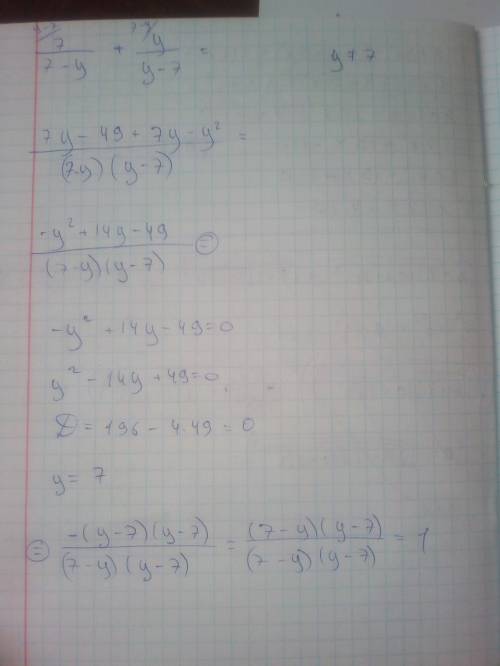 7/(7-y) + y/(y-7) = y≠7
(7y - 49 + 7y - y²)/((7-y)(y-7)) =
(-y² + 14y - 49)/((7-y)(y-7)) =
-y² + 14y - 49 = 0
y² - 14y + 49 = 0
D = 196 - 4·49 = 0
y = 7
= (-(y-7)(y-7))/((7-y)(y-7)) = ((7-y)(y-7))/((7-y)(y-7)) = 1